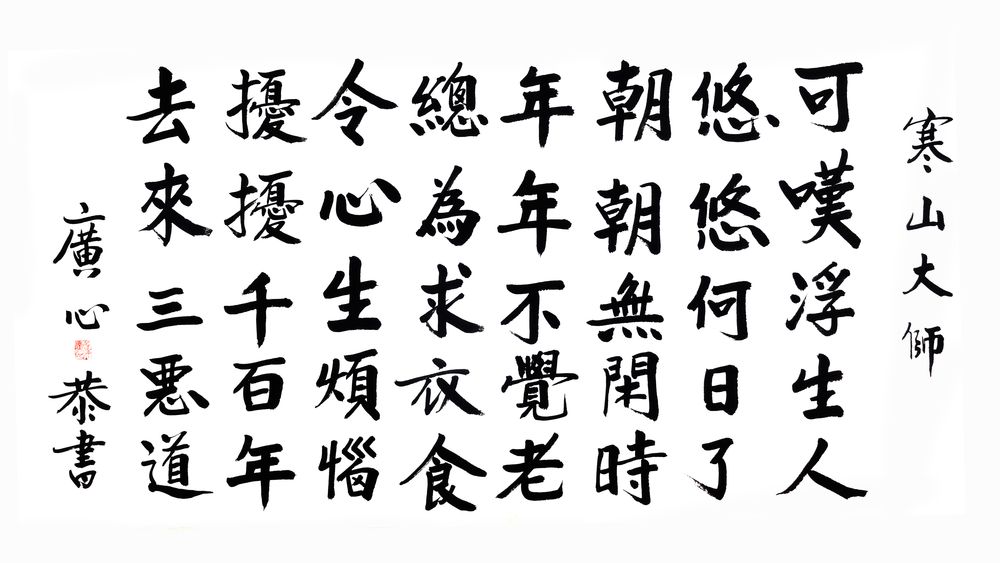 寒山大師
可嘆浮生人
悠悠何日了
朝朝無閑時
年年不覺老
總為求衣食
令心生煩惱
擾擾千百年
去來三悪道
廣心恭書